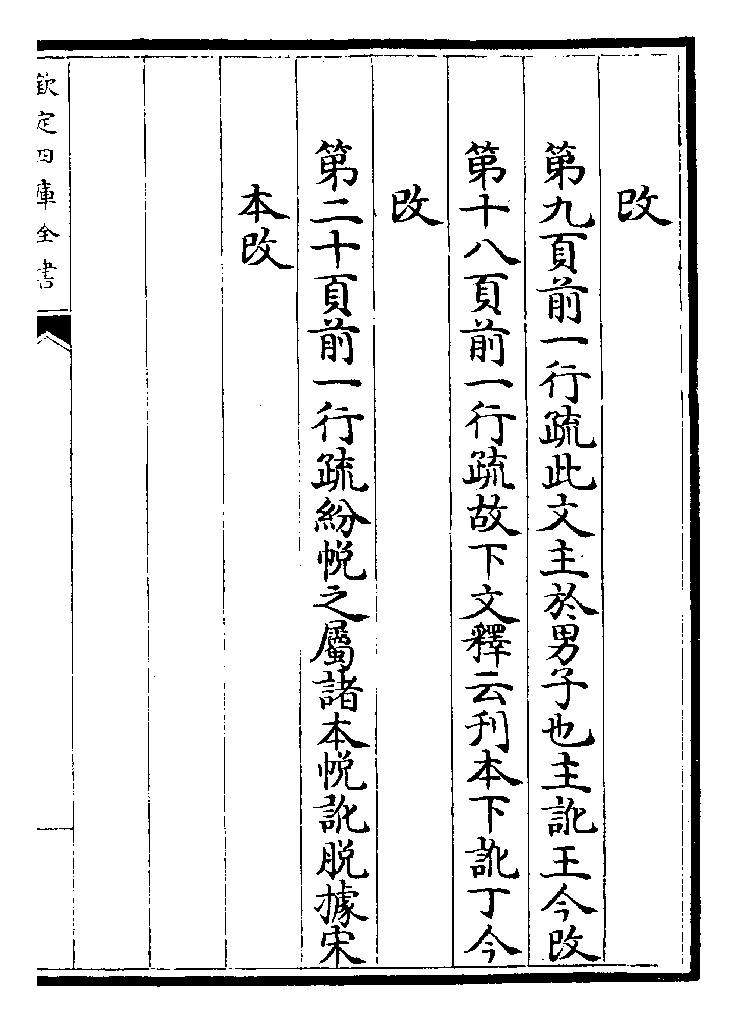 改
第九頁前一行疏此文主於男子也主訛王今改
第十八頁前一行疏故下文釋云刋本下訛丁今
改
第二十頁前一行疏紛帨之屬諸本帨訛脱據宋
本改
欽定四庫全書